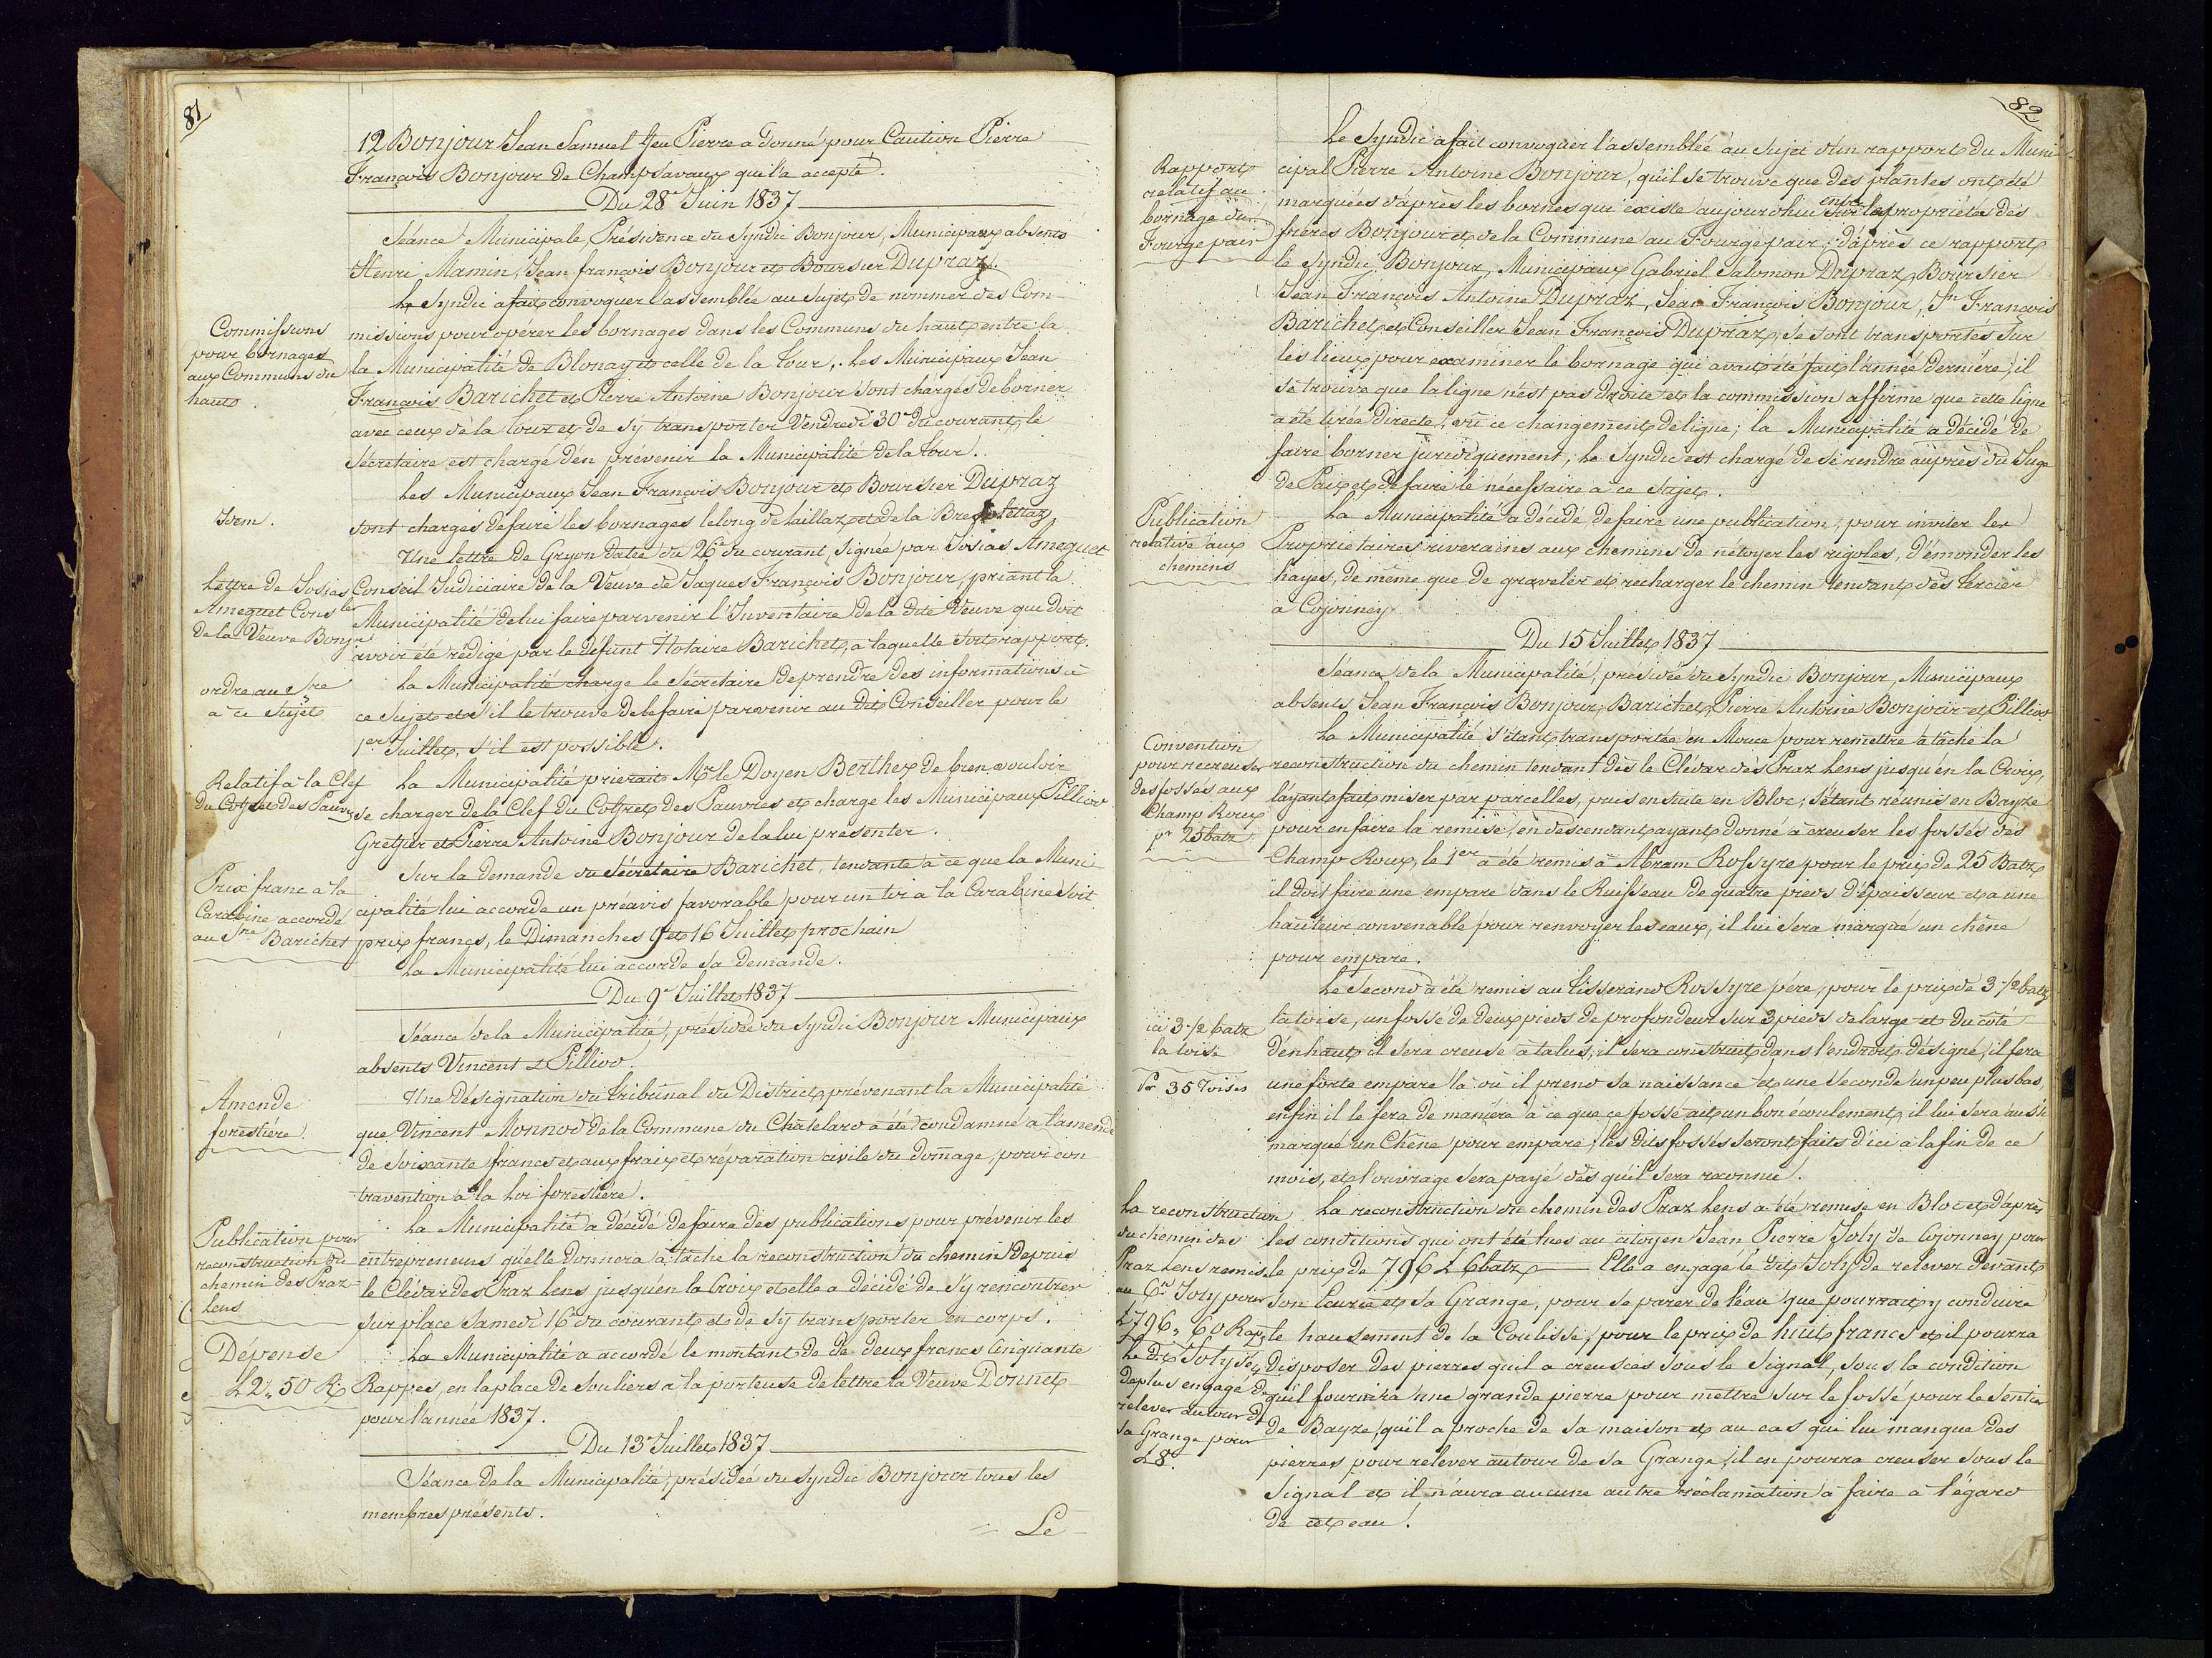 81
12 Bonjour Jean Samuel feu Pierre a donné pour Caution Pierre
François Bonjour de Champsavaux qui l'a accepté.
Du 28e Juin 1837
Séance Municipale, Présidence du Syndic Bonjour, Municipaux absents
Henri Mamin, Jean françois Bonjour et Boursier Dupraz.
Le Syndic a fait convoquer l'assemblée au sujet de nommer des Com-
Commissions
pour bornages
aux Communs du
haut.
missions pour opérer les bornages dans les Communs du haut entre la
la Municipalité de Blonay et celle de la Tour, les Municipaux Jean
François Barichet et Pierre Antoine Bonjour sont chargés de borner
avec ceux de la Tour et de s'y transporter Vendredi 30e du courant, le
Sécretaire est chargé d'en prévenir la Municipalité de la Tour.
Les Municipaux Jean François Bonjour et Boursier Dupraz
Idem.
sont chargés de faire les bornages le long de laillaz et de la
Une lettre de Gryon datée du 26e du courant, signée par Josias Ameguet
Lettre de Josias
Ameguet Conser
de la Veuve Bonjr
Conseil Judiciaire de la Veuve de Jaques François Bonjour, priant la
Municipalité de lui faire parvenir l'Inventaire de la dite Veuve qui doit
avoir été rédigé par le défunt Notaire Barichet, a laquelle soit rapport.
La Municipalité charge le Sécretaire de prendre des informations à
ordre au Sre
à ce sujet
ce sujet et s'il le trouve de le faire parvenir au dit Conseiller pour le
1er Juillet, s'il est possible.
La Municipalité prierait Mr le Doyen Berthex de bien vouloir
Relatif à la Clef
du Coffret des Pauvres
se charger de la Clef du Coffret des Pauvres et charge les Municipaux Pilliod
Gretger et Pierre Antoine Bonjour de la lui présenter.
Sur la demande du Sécrétaire Barichet, tendante à ce que la Muni
Prix franc a la
Carabine accordé
au Sre Barichet
cipalité lui accorde un préavis favorable pour un tir à la Carabine soit
prix francs, le Dimanches 9 et 16 Juillet prochain
La Municipalité lui accorde sa demande.
Du 9e Juillet 1837
Séance de la Municipalité, présidée du Syndic Bonjour Municipaux
absents Vincent & Pilliod.
Une désignation du Tribunal du District, prévenant la Municipalité
Amende
forestière.
que Vincent Monnod de la Commune du Châtelard a été condamné a l'amende
de soixante francs et aux fraix et réparation civile du domage, pour con-
travention à la Loi forestière.
La Municipalité a décidé de faire des publications pour prévenir les
Publication pour
reconstruction du
chemin des Praz-
Lens
entrepreneurs qu'elle donnera à tâche la reconstruction du chemin depuis
le Clédar des Praz Lens jusqu'en la Croix et elle a décidé de s'y rencontrer
sur place Samedi 16e du courant et de s'y transporter en corps.
Dépense
L 2,, 50 Rp
La Municipalité a accordé le montant de de deux francs Cinquante
Rappes, en la place de souliers a la porteuse de lettre la Veuve Donnet
pour l'année 1837.
Du 13e Juillet 1837
Séance de la Municipalité, présidée du Syndic Bonjour tous les
membres présents.
Le
82
Le Syndic a fait convoquer l'assemblée au sujet d'un rapport du Muni-
Rapport
relatif au
bornage du
Fourgepair
cipal Pierre Antoine Bonjour, qu'il se trouve que des plantes ont été
marquées d'après les bornes qui existe aujourd'hui entre les propriétés des
frères Bonjour et de la Commune au Fourgepair; d'après ce rapport,
le Syndic Bonjour, Municipaux Gabriel Salomon Dupraz, Boursier
Jean François Antoine Dupraz, Jean François Bonjour, Jn François
Barichet, et Conseiller Jean François Dupraz, se sont transportés sur
les lieux pour examiner le bornage qui avait été fait l'année dernière; il
se trouve que la ligne n'est pas droite et la commission affirme que cette ligne
a été tirée directe, vû ce changement de ligne; la Municipalité a décidé de
faire borner juridiquement, Le Syndic est chargé de se rendre auprès du Juge
de Paix et de faire le nécessaire à ce sujet.
Publication
relative aux
chemins
La Municipalité a décidé de faire une publication, pour inviter les
Proprietaires riverains aux chemins de nétoyer les rigoles, d'émonder les
hayes, de même que de graveler et recharger le chemin tendant dès Tercier
à Cojonney.
Du 15 Juillet 1837
Séance de la Municipalité, présidée du Syndic Bonjour, Municipaux
absents Jean François Bonjour, Barichet, Pierre Antoine Bonjour et Pilliod
Convention
pour recreuser
des fossés aux
Champ Roux
pr 25 batz
La Municipalité s'étant transportée en Mouce pour remettre à tâche la
reconstruction du chemin tendant dès le Clédar des Praz Lens jusqu'en la Croix,
l'ayant fait miser par parcelles, puis ensuite en Bloc; s'étant réunis en Bayze
pour en faire la remise, en descendant ayant donné à creuser les fossés des
Champ Roux, le 1er a été remis à Abram Rossyre pour le prix de 25 Batz
il doit faire une empare dans le Ruisseau de quatre pieds d'épaisseur et a une
hauteur convenable pour renvoyer les eaux, il lui sera marqué un chêne
pour empare.
Le Second a été remis au Tisserand Rossyre père, pour le prix de 3 1/2 batz
ici 3 1/2 batz
la toise
Pr 35 Toises
la toise, un fossé de deux pieds de profondeur sur 3 pieds de large et du côté
d'en haut il sera creusé à talus, il sera construit dans l'endroit désigné, il fera
une forte empare là où il prend sa naissance et une seconde un peu plus bas,
enfin il le fera de manière à ce que ce fossé ait un bon écoulement, il lui sera aussi
marqué un Chêne pour empare; les dits fossés seront faits d'ici à la fin de ce
mois, et l'ouvrage sera payé dès qu'il sera reconnu.
La reconstruction
du chemin des
Praz Lens remise
au Cen Joly pour
L 796,, 60 Rap
Le dit Joly s'est
de plus engagé de
relever autour de
sa Grange pour
L 8.
La reconstruction du chemin des Praz Lens a été remise en Bloc et d'après
les conditions qui ont été lues au citoyen Jean Pierre Joly de Cojonney pour
le prix de 796 L 6 batz Elle a engagé le dit Joly de relever devant
son Courie et sa Grange, pour se parer de l'eau que pourrait y conduire
le hausement de la Coulisse, pour le prix de huit francs et il pourra
disposer des pierres qu'il a creusées sous le Signal, sous la condition
qu'il fournira une grande pierre pour mettre sur le fossé pour le sentier
de Bayze, qu'il a proche de sa maison et au cas qui lui manque des
pierres pour relever autour de sa Grange, il en pourra creuser sous le
Signal et il n'aura aucune autre réclamation à faire à l'égard
de cet eau.